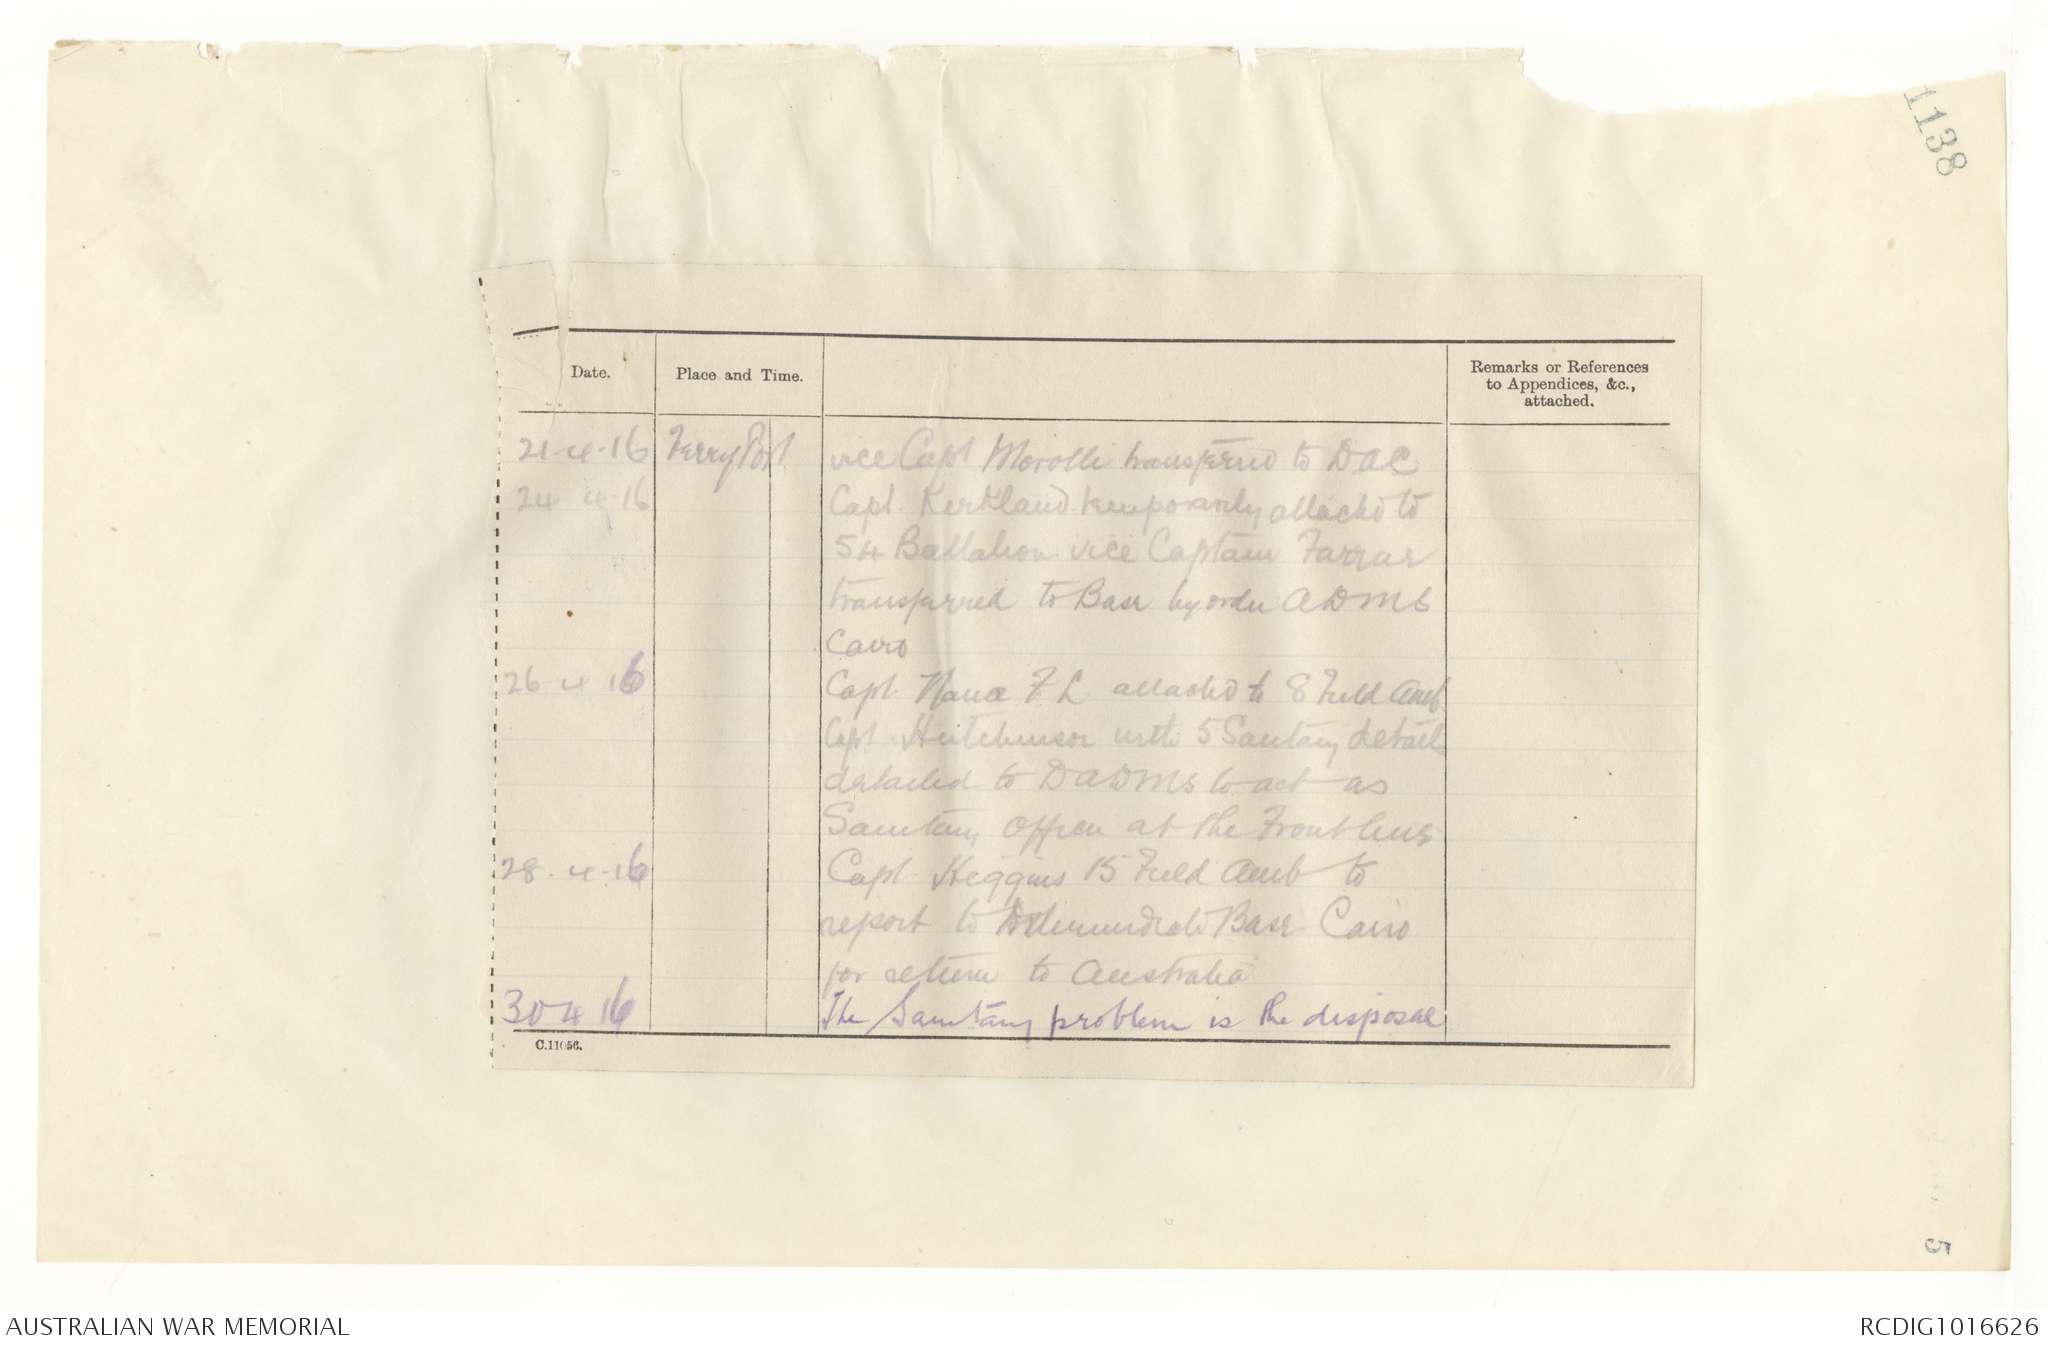 1138
Date.
Place and Time.
Remarks or References
to Appendices, &c.,
attached.
21-4-16 Ferry Post vice Capt Morolli transferred to DAC
24 4-16 Capt. Kerkland temporarily attached to
54 Battalion vice Captain Farrar
transferred to Base by order ADMS
Cairo
26-4 16 Capt. F L attached to 8 Field Amb
Capt Hutchinson with 5 Sanitary details
detached to DADMS to act as
Sanitary Officer at the Front lines
28-4-16 Capt. Higgins 15 Field Amb to
report to Base Cairo
for return to Australia
30 4 16 The Sanitary problem is the disposal
C.11056.
5
AUSTRALIAN WAR MEMORIAL
RCDIG1016626